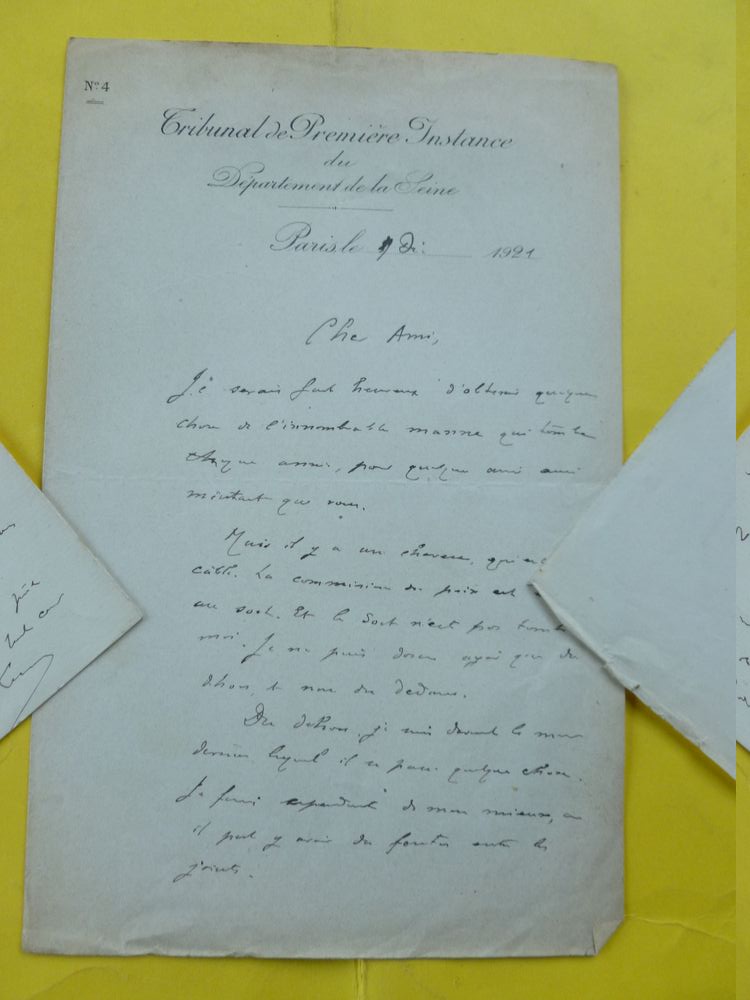 N° 4
Tribunal de Première Instance
du
Département de la Seine
Paris, le 9 Di: 1921
Cher Ami,
Je serais fort heureux d'obtenir quelque
chose de l'innombrable manne qui tombe
chaque année, pour quelque ami aussi
méritant que vous.
Mais il y a un cheveu, qui est
câble. La commission du prix est
au sort. Et le Sort n'est pas tombé
moi. Je ne puis donc agir que du
dehors, et non du dedans.
Du dehors, je suis devant le mur
derrière lequel il se passe quelque chose.
Je ferai cependant de mon mieux, car
il peut y avoir des fentes entre les
joints.